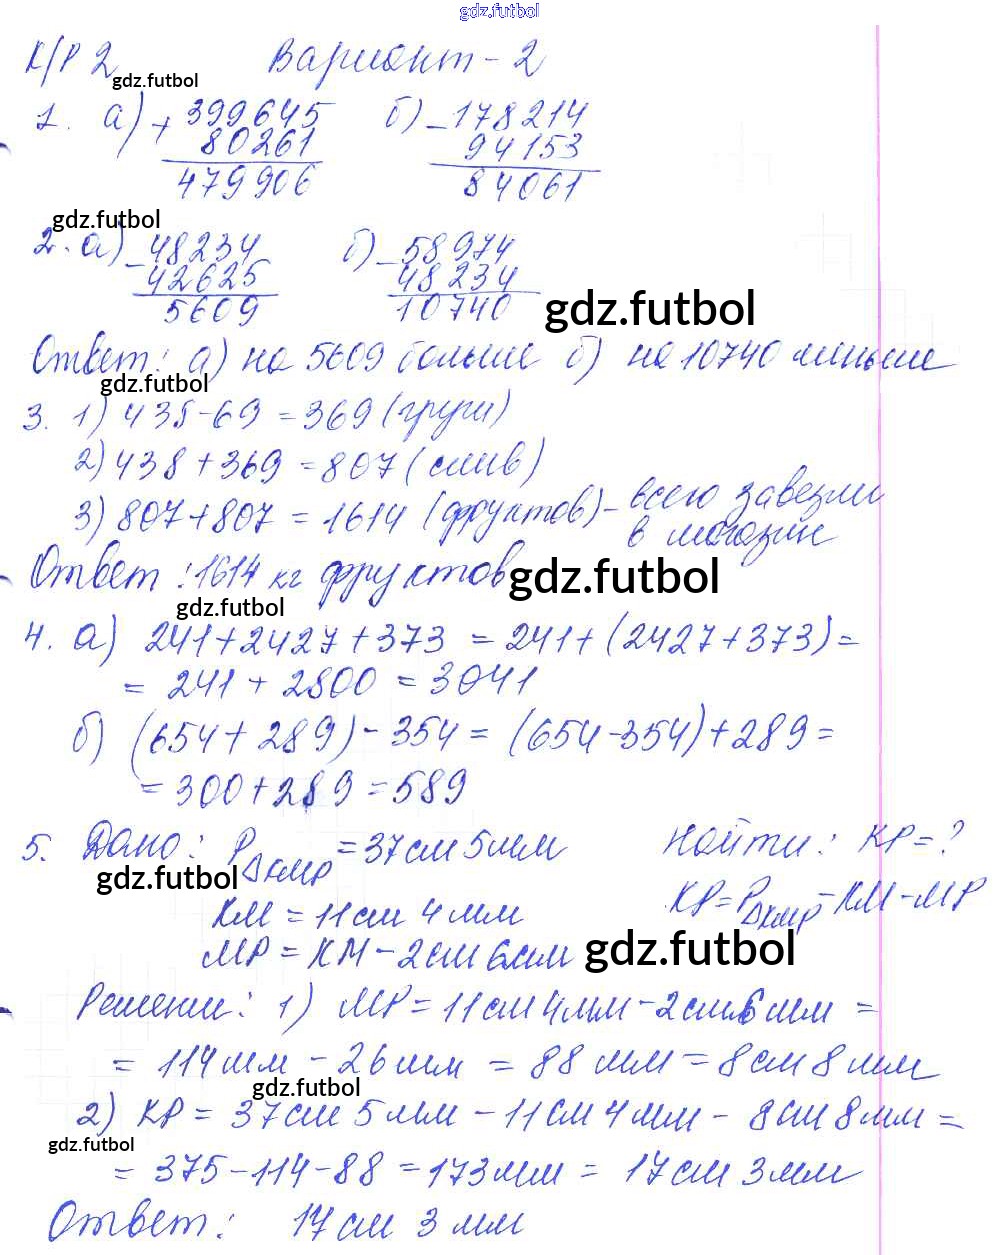 gdz.futbol
К/Р 2 Вариант - 2
gdz.futbol
1. а) + 399645 б) - 178214
80261 94153
479906 84061
gdz.futbol
2. а) - 48234 б) - 58974
42625 48234
5609 10740
gdz.futbol
Ответ: а) на 5609 больше б) на 10740 меньше
gdz.futbol
3. 1) 438-69 = 369 (груш)
2) 438 + 369 = 807 (слив)
3) 807+807 = 1614 (фруктов) - всего завезли
в магазин
Ответ: 1614 кг фруктов
gdz.futbol
gdz.futbol
4. а) 241+2427+373 = 241+(2427+373)=
= 241 + 2800 = 3041
б) (654+289)-354 = (654-354)+289=
= 300+289 = 589
5. Дано: P△KMP = 37см 5мм Найти: KP=?
gdz.futbol
KM = 11см 4мм KP=P△KMP-KM-MP
MP = KM - 2см 6мм
gdz.futbol
Решение: 1) MP = 11см 4мм - 2см 6мм =
= 114мм - 26мм = 88мм = 8см 8мм
gdz.futbol
2) KP = 37см 5мм - 11см 4мм - 8см 8мм =
gdz.futbol
= 375-114-88 = 173мм = 17см 3мм
Ответ: 17см 3мм